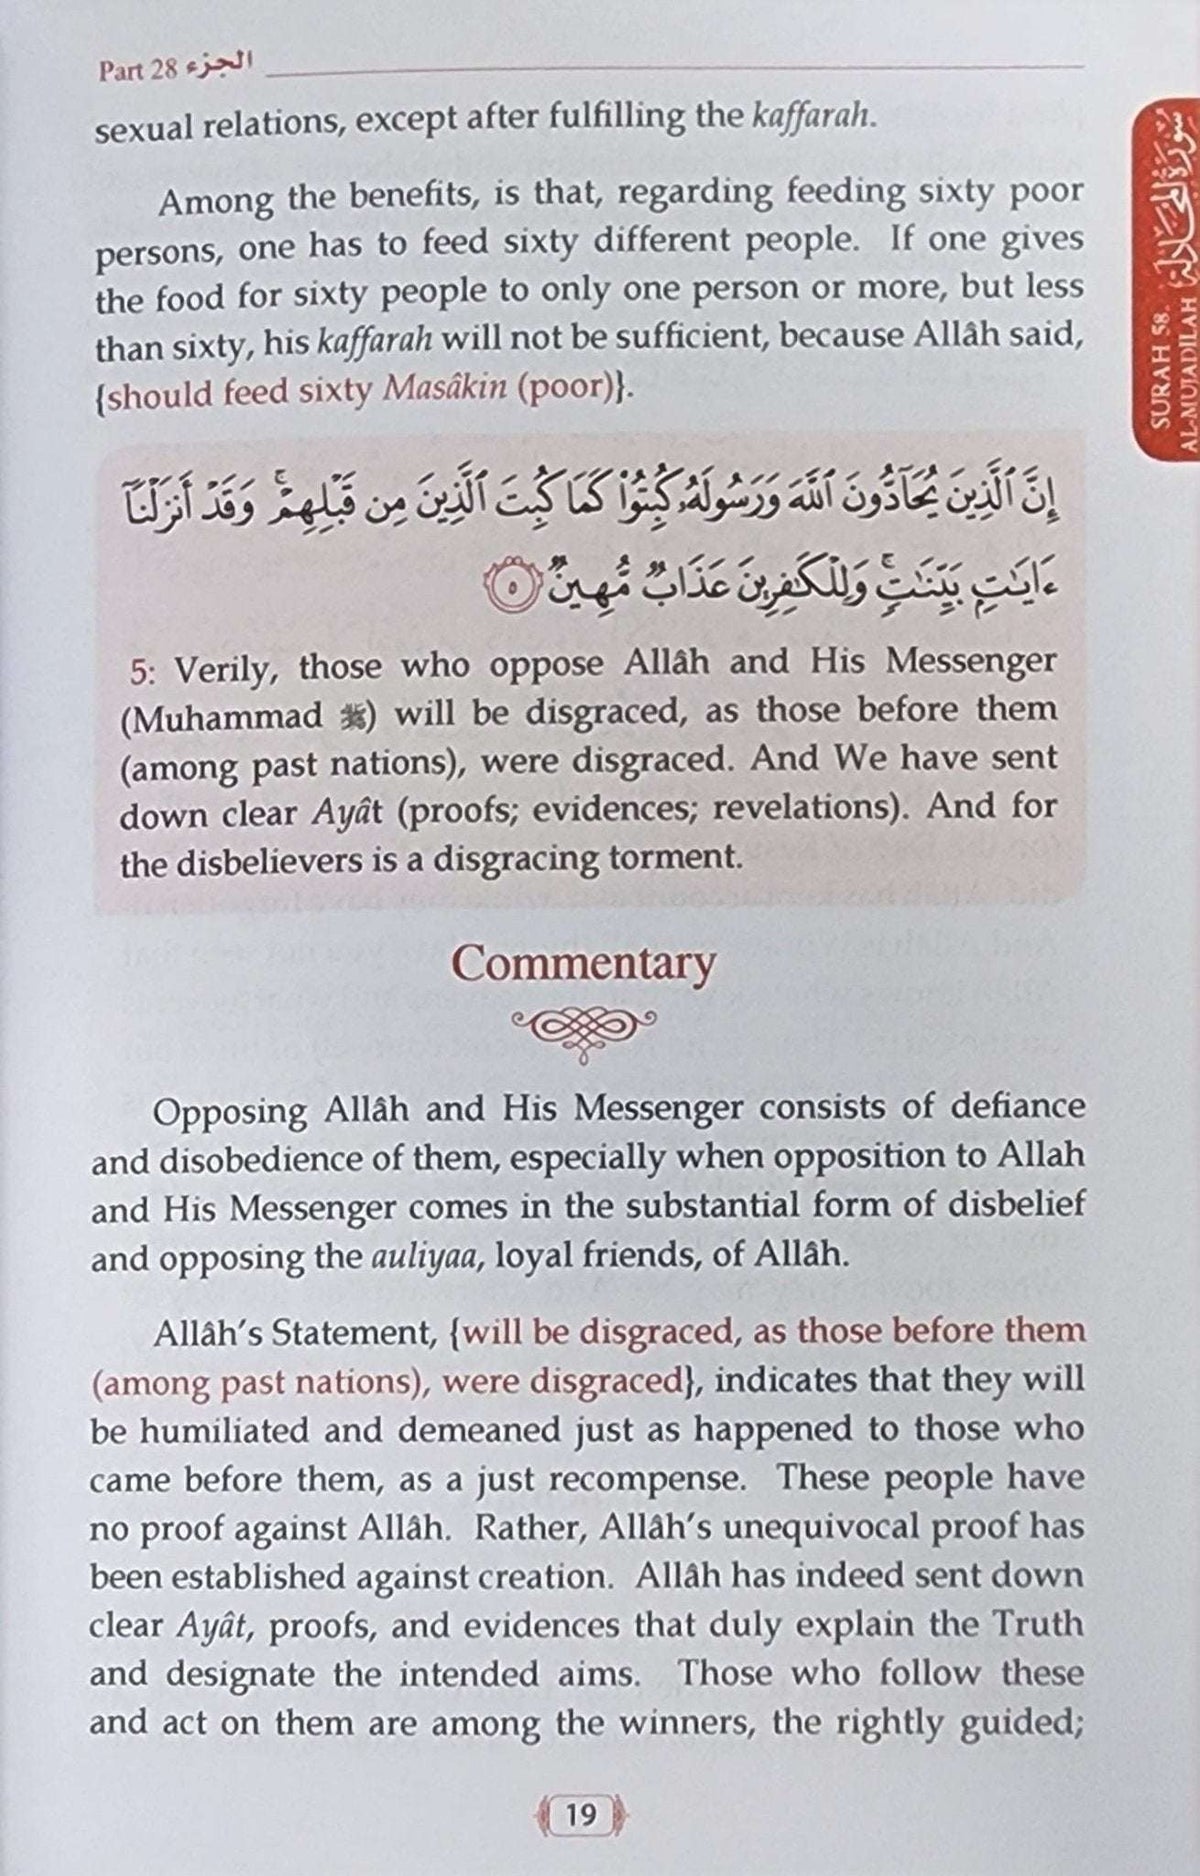 Part 28 الجزء
sexual relations, except after fulfilling the kaffarah.
Among the benefits, is that, regarding feeding sixty poor
persons, one has to feed sixty different people. If one gives
the food for sixty people to only one person or more, but less
than sixty, his kaffarah will not be sufficient, because Allâh said,
{should feed sixty Masâkin (poor)}.
إِنَّ ٱلَّذِينَ يُحَآدُّونَ ٱللَّهَ وَرَسُولَهُۥ كُبِتُوا۟ كَمَا كُبِتَ ٱلَّذِينَ مِن قَبْلِهِمْ ۚ وَقَدْ أَنزَلْنَآ
ءَايَـٰتٍۭ بَيِّنَـٰتٍ ۚ وَلِلْكَـٰفِرِينَ عَذَابٌ مُّهِينٌ ٥
5: Verily, those who oppose Allâh and His Messenger
(Muhammad ﷺ) will be disgraced, as those before them
(among past nations), were disgraced. And We have sent
down clear Ayât (proofs; evidences; revelations). And for
the disbelievers is a disgracing torment.
Commentary
Opposing Allâh and His Messenger consists of defiance
and disobedience of them, especially when opposition to Allah
and His Messenger comes in the substantial form of disbelief
and opposing the auliyaa, loyal friends, of Allâh.
Allâh's Statement, {will be disgraced, as those before them
(among past nations), were disgraced}, indicates that they will
be humiliated and demeaned just as happened to those who
came before them, as a just recompense. These people have
no proof against Allâh. Rather, Allâh's unequivocal proof has
been established against creation. Allâh has indeed sent down
clear Ayât, proofs, and evidences that duly explain the Truth
and designate the intended aims. Those who follow these
and act on them are among the winners, the rightly guided;
19
SURAH 58. سُورَةُ المُجَادلَةِ
AL-MUJADILAH